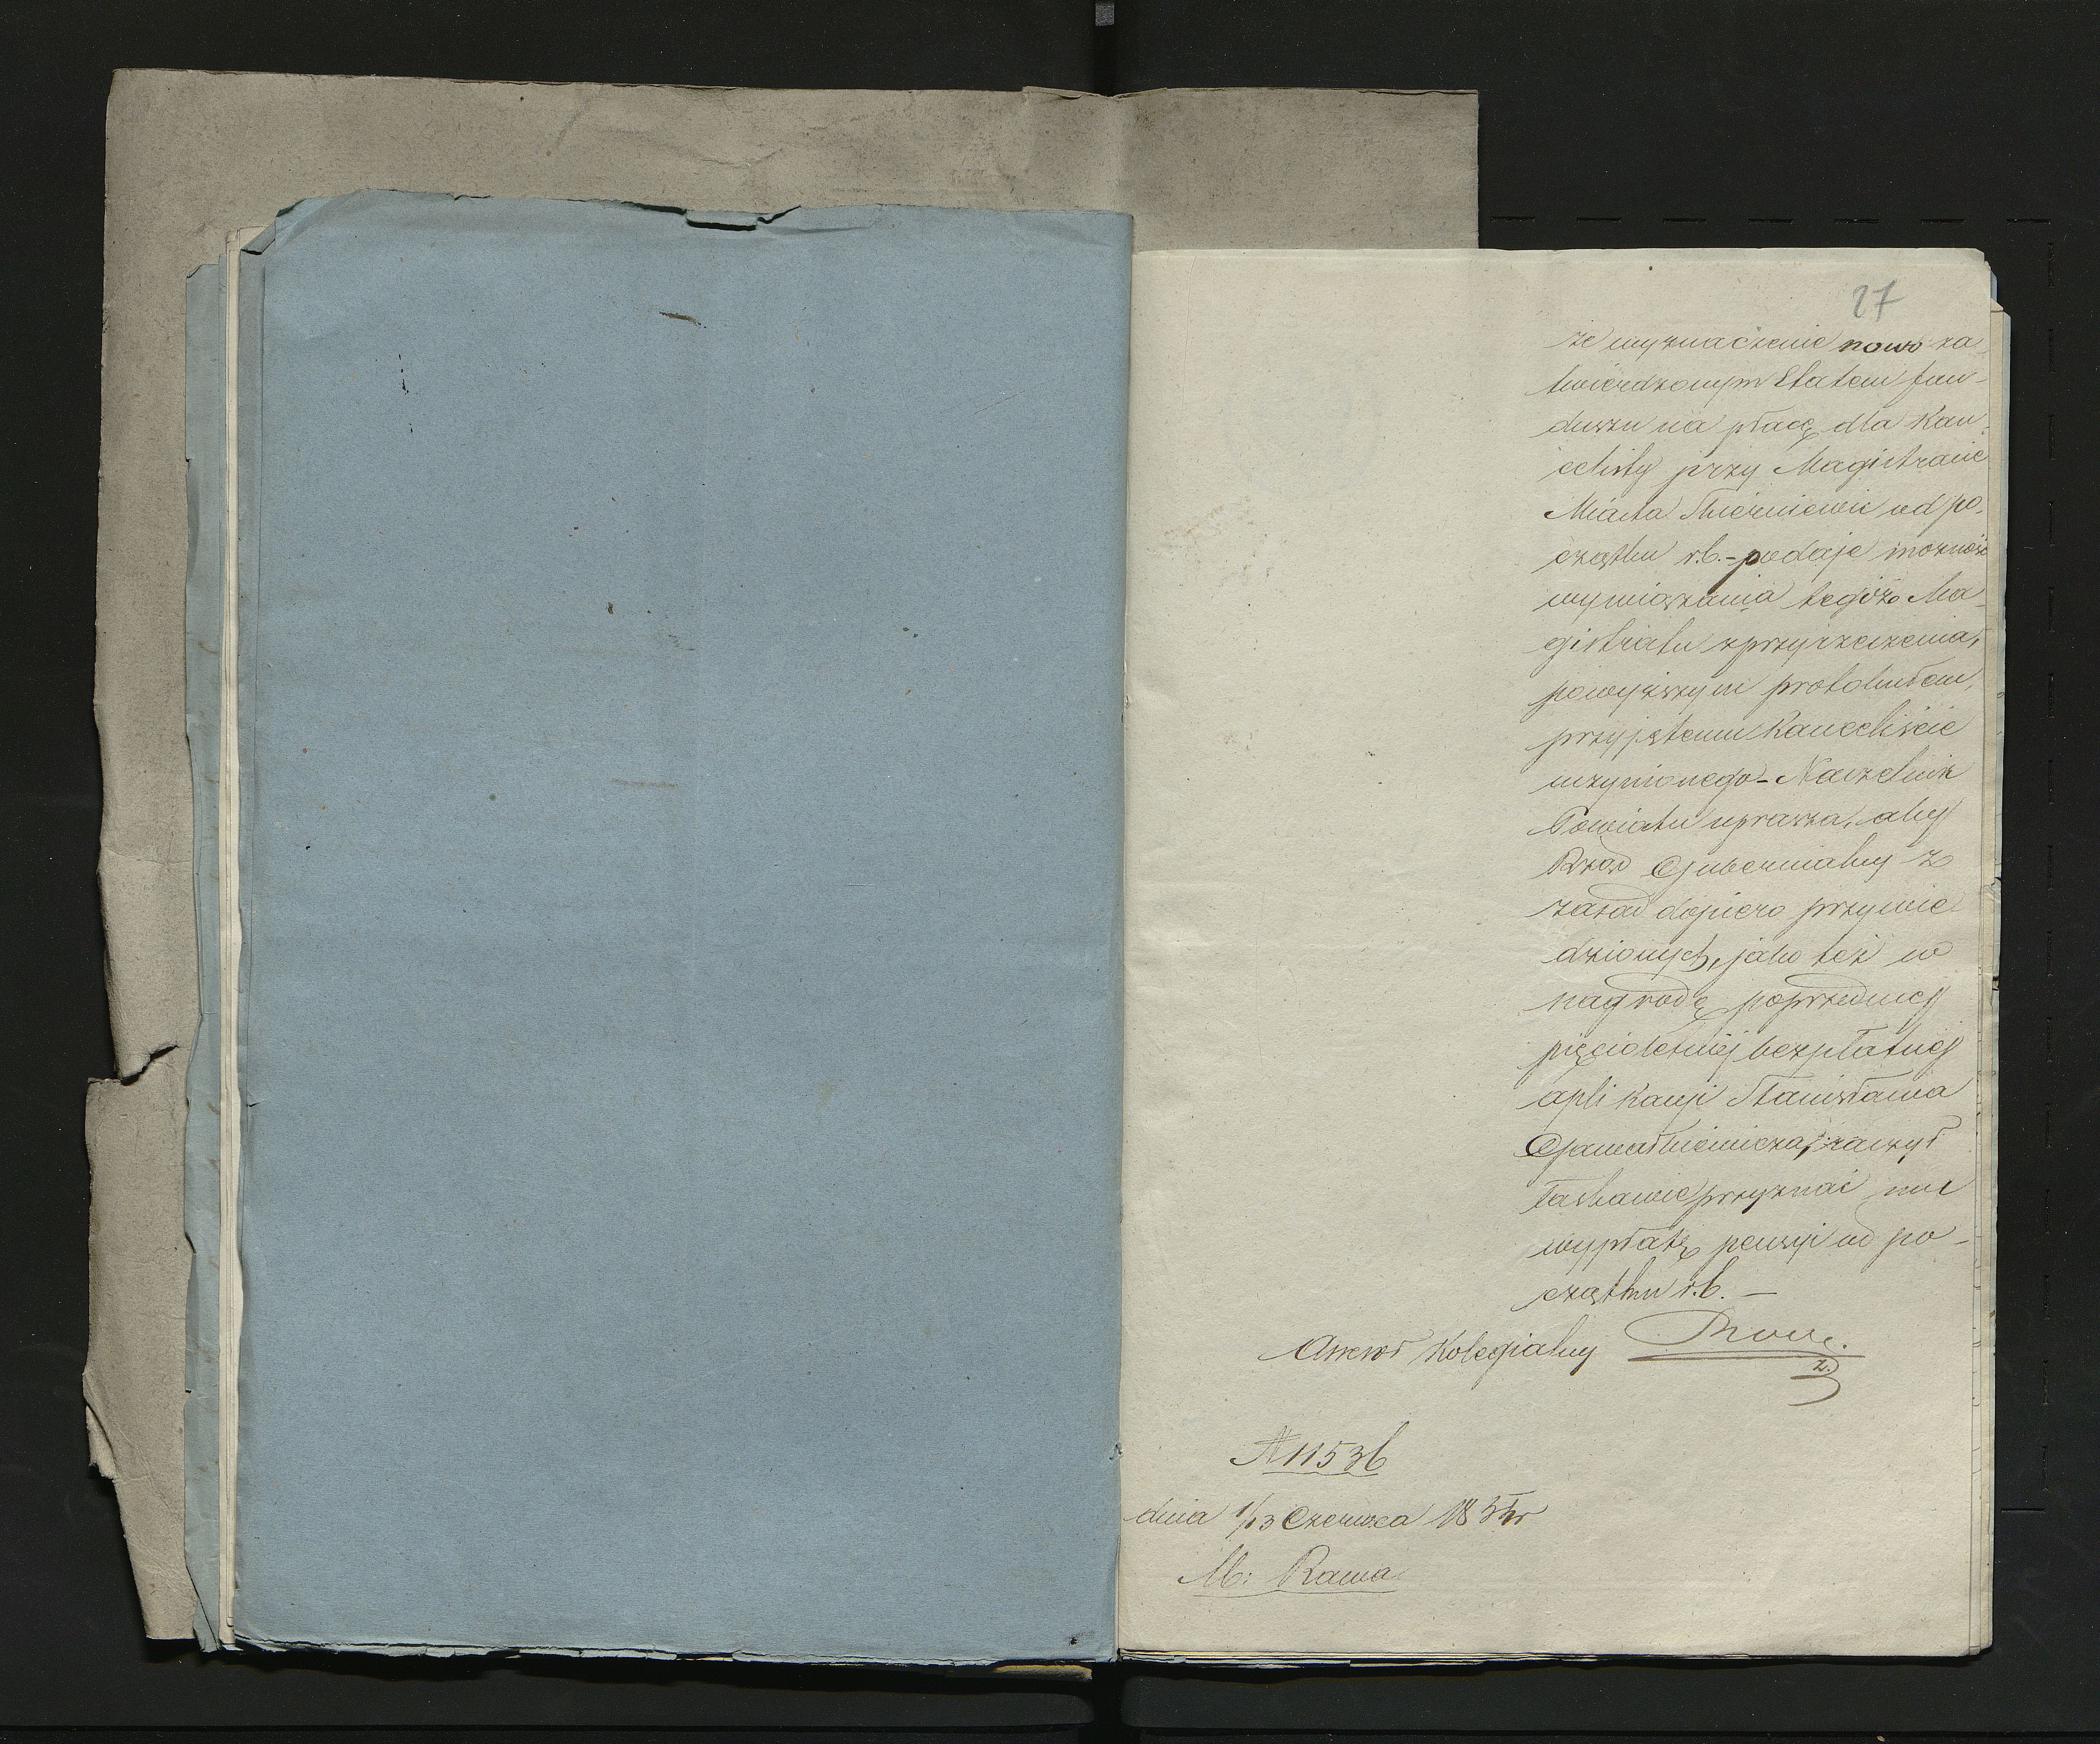 27
że wyznaczenie nowo za-
twierdzonym Etatem fun-
duszu na płacę dla Kan-
celisty przy Magistracie
Miasta Skierniewic od po-
czątku r.b. - podaje możność
wywiązania tegóżo Ma-
gistratu z przyrzeczenia,
powyższym protokułem,
przyjętemu Kanceliście
uczynionego - Naczelnik
Powiatu uprasza, aby
Rząd Gubernialny z
zasad dopiero przywie-
dzionych, jako też w
nagrodę poprzedniej
pięcioletniéj bezpłatnej
aplikacyi Stanisława
raczył
łaskawie przyznać mu
wypłatę pensyi od po-
czątku r.b. —
Assesor Kolegialny
N 11536
dnia 1/13 Czerwca 18
M: Rawa